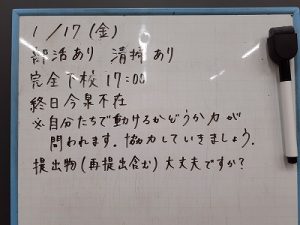 1/17(金)
部活あり 清掃あり
完全下校 17:00
終日今泉不在
※自分たちで動けるかどうか力が
問われます。協力していきましょう。
提出物(再提出含む)大丈夫ですか?